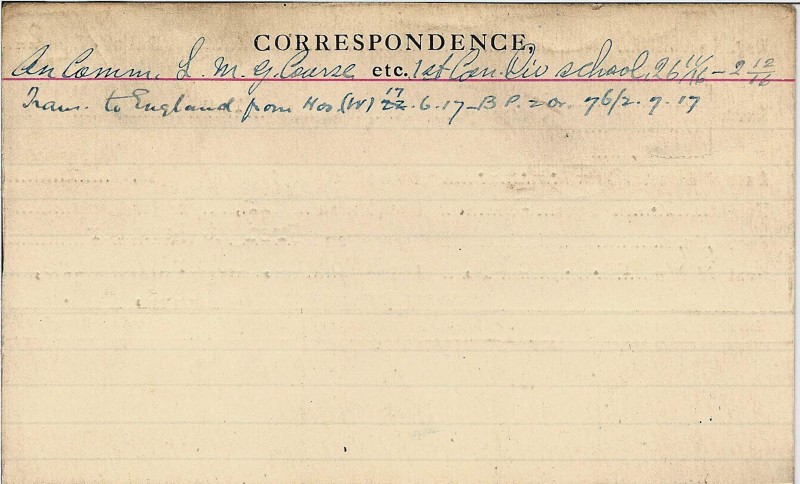 CORRESPONDENCE,
On Comm. L. M. G. Course etc. 1st Can. Div school, 26 11/16 – 2 12/16
Trans. to England from Hos. (W) 17 22. 6. 17 – B P. 2 Or. 76/2. 7. 17